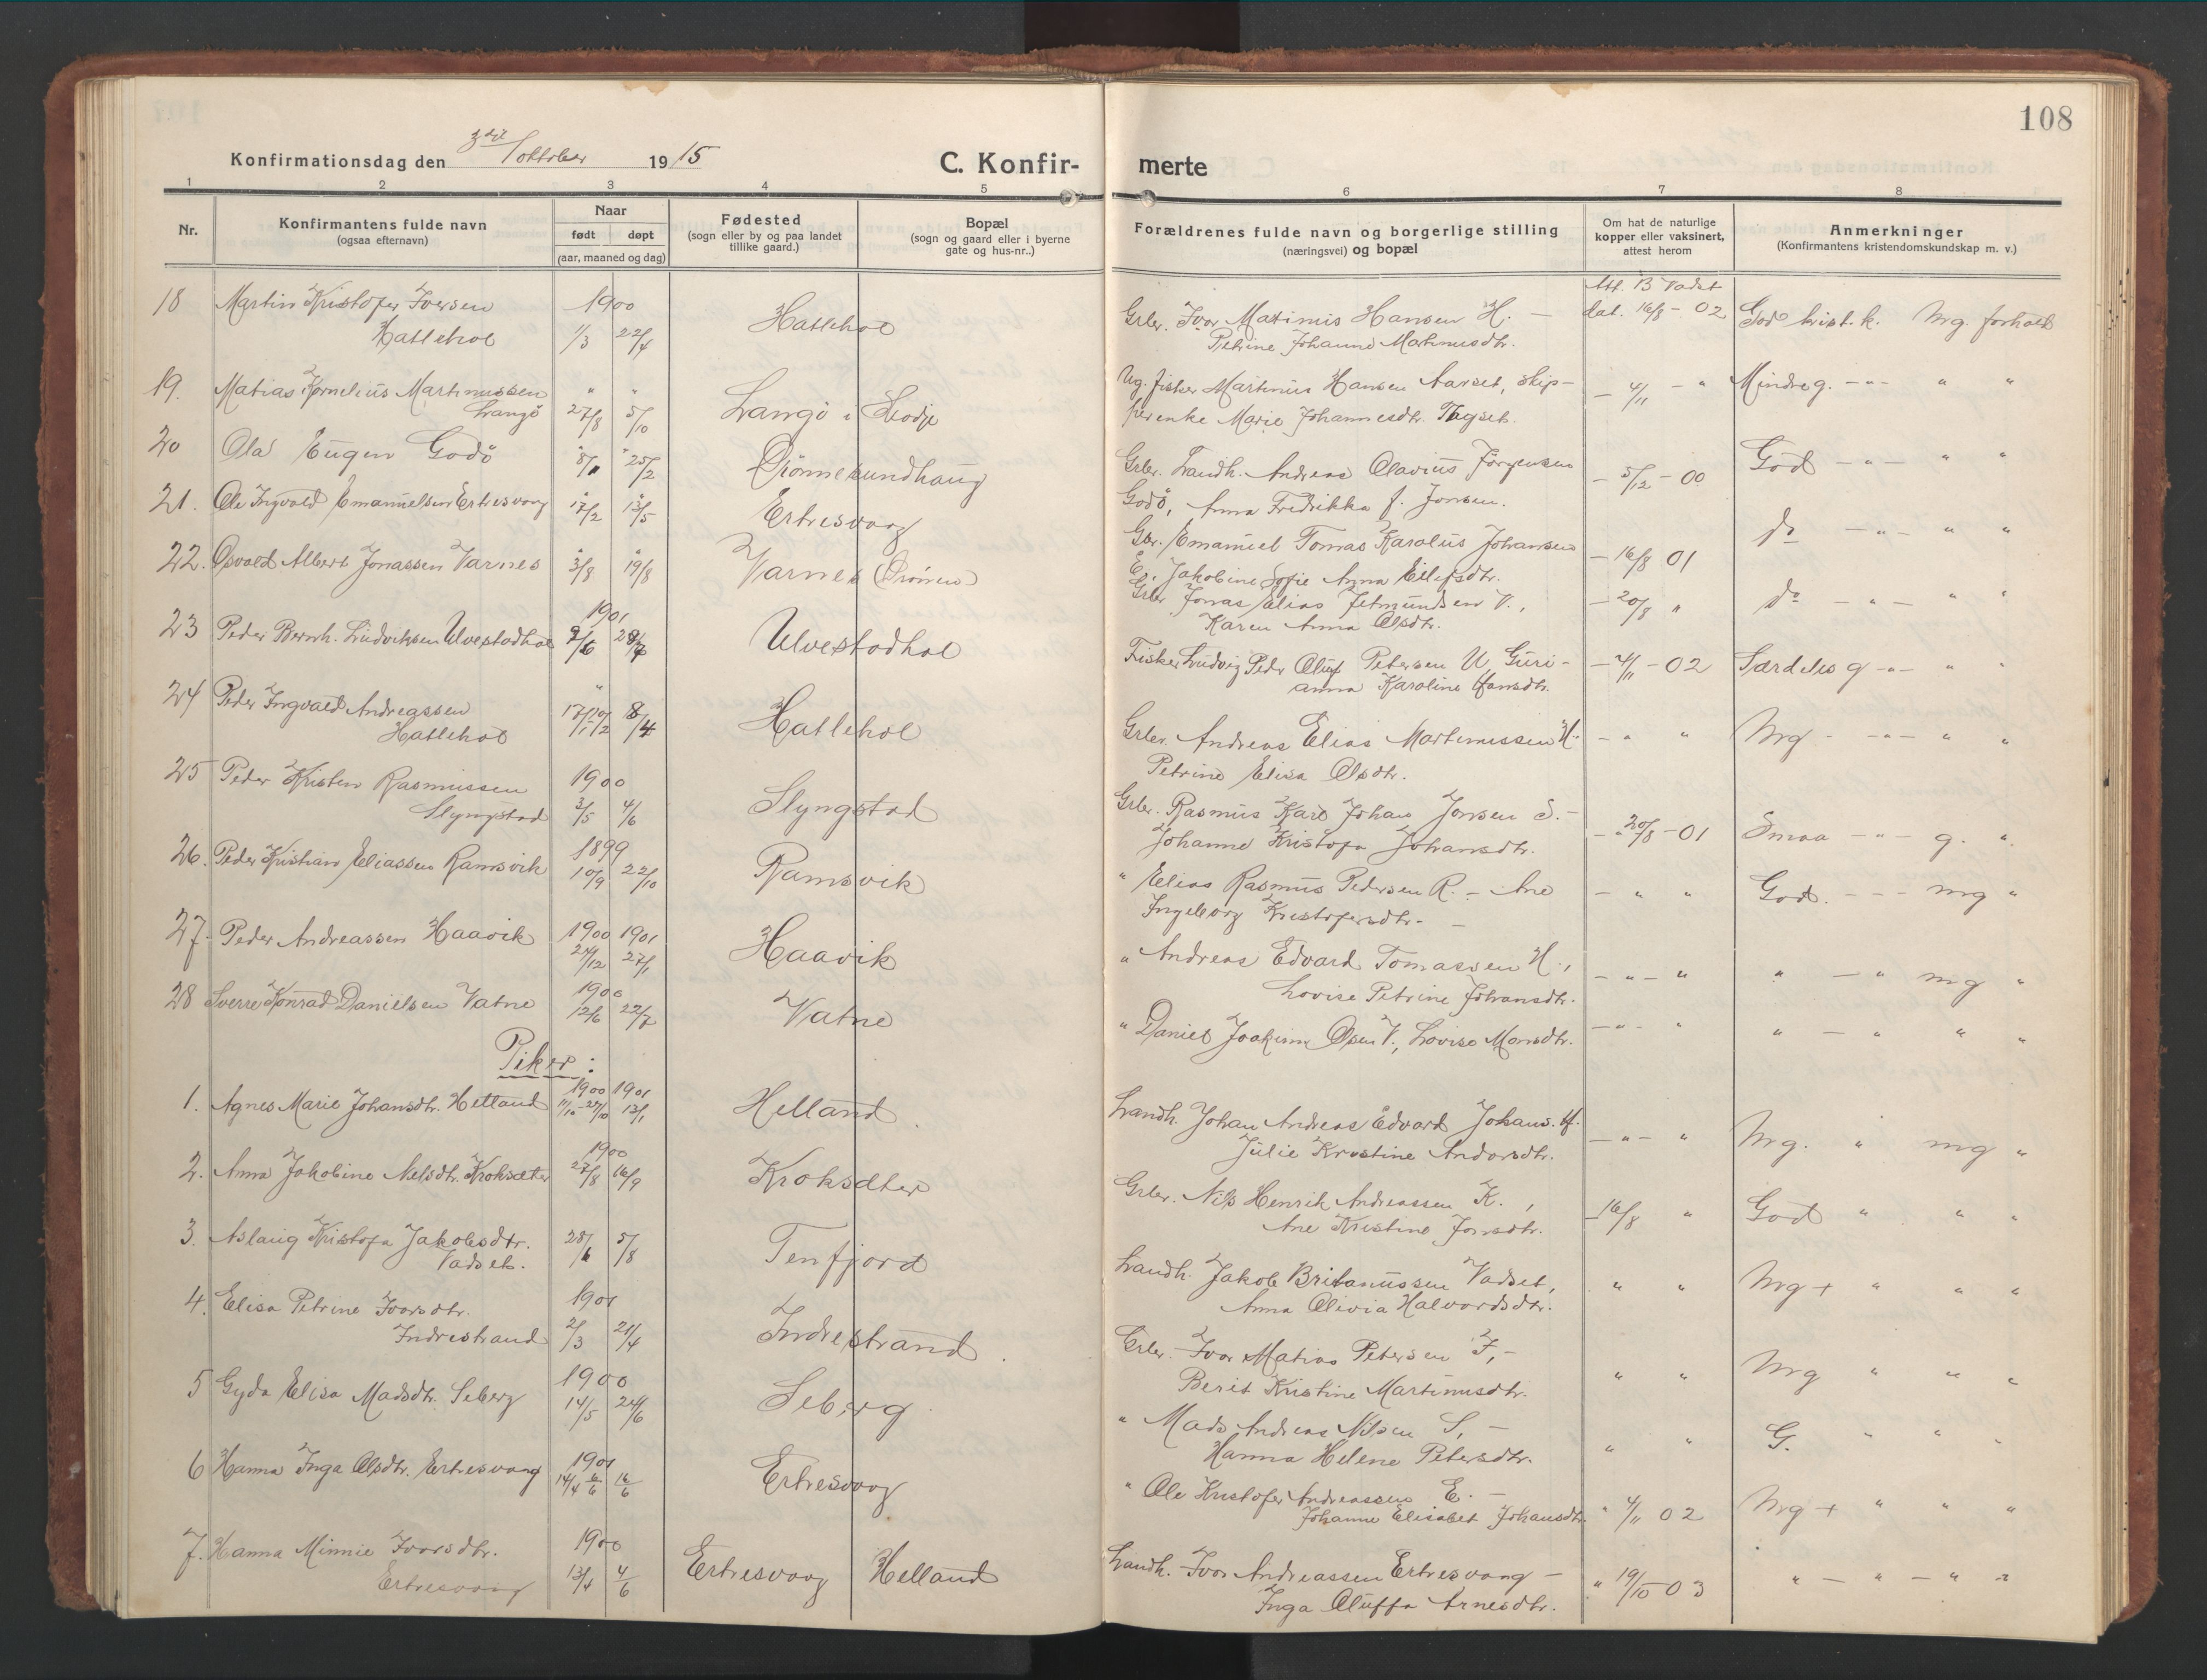 108
Konfirmationsdag den 3die/oktober 1915
C. Konfirmerte
1 2 3 4 5 6 7 8
Nr.
Konfirmantens fulde navn
(ogsaa efternavn)
Naar
født døpt
(aar, maaned og dag)
Fødested
(sogn eller by og paa landet
tillike gaard.)
Bopæl
(sogn og gaard eller i byerne
gate og hus-nr..)
Forældrenes fulde navn og borgerlige stilling
(næringsvei) og bopæl
Om hat de naturlige
kopper eller vaksinert,
attest herom
Anmerkninger
(Konfirmantens kristendomskundskap m. v.)
Att. B Vadset
18 Martin Kristofer Iversen 1900 Hatlehol Grbr. Ivar Matinus Hansen H. — dat. 16/8 - 02 God krist.k. Mg. forhold
Hatlehol 1/3 22/4 Petrine Johanne Martinusdtr.
19. Matias Kornelius Martinussen " " Langö i Hodje Ug. fisker Martinus Hansen Aarset, skip- — 4/11 - " Mindre g. - " - " "
Langö 27/8 5/10 perenke Marie Johannesdtr. Tagset.
20 Ola Eugen Godö " 8/1 " 25/2 Drönnesundhaug Grbr. Landh. Andreas Olavius Jörgensen — 5/12 - 00 God - " - " "
Godö, Anna Fredrikka f. Jonsen.
21. Ole Ingvald Emanuelsen Ertresvaag " 17/2 " 13/5 Ertresvaag Gbr. Emanuel Tomas Karolus Johansen — 16/8 01 do - " - " "
E., Jakobine Sofie Anna Eilefsdtr.
22. Osvald Albert Jonassen Varnes " 3/8 " 19/8 Varnes (Drönen) Grbr Jonas Elias Jetmundsen V., — 20/8 " do - " - " "
Karen Anna Olsdtr.
23 Peder Bernh. Ludviksen Ulvestadhol 1901 9/6 28/7 Ulvestadhol Fisker Ludvig Peder Oluf Petersen U, Guri- — 4/11 - 02 Særdeles g - " - " "
anna Karoline Hansdtr.
24 Peder Ingvald Andreassen " Hatlehol Grbr. Andreas Elias Martinussen H- - " " Mg - - " - " "
Hatlehol 17/1 10/2 8/4 Petrine Elisa Olsdtr.
25 Peder Kristen Rasmussen 1900 Slyngstad Grbr. Rasmus Karl Johan Jonsen S. — - " 20/8 - 01 Smaa - " - g. "
Slyngstad 3/5 4/6 Johanne Kristofa Johansdtr.
26. Peder Kristian Eliassen Ramsvik 1899 10/9 22/10 Ramsvik " Elias Rasmus Pedersen R. - Ane - " " God. - - - mg "
Ingeborg Kristofersdtr. —
27. Peder Andreassen Haavik 1900 1901 24/12 27/1 Haavik " Andreas Edvard Tomassen H., - " - " " - " mg "
Lovise Petrine Johansdtr.
28 Sverre Konrad Danielsen Vatne 1900 12/6 22/7 Vatne " Daniel Joakim Olsen V., Lovise Monsdtr. - " - " " - " " "
Piker:
1. Agnes Marie Johansdtr. Helland 1900 1901 11/10 - 27/10 13/1 Helland Landh. Johan Andreas Edvard Johans. H. - " - " Mg. " mg "
Julie Kristine Andorsdtr.
2. Anna Jakobine Nelsdtr. Kroksæter 1900 27/8 16/9 Kroksæter Grbr. Nils Henrik Andreassen K., — 16/8 " God " " "
Ane Kristine Jonsdtr.
3. Aslaug Kristofa Jakobsdtr. 28/6 5/8 Tenfjord Landh. Jakob Britanussen Vadset, " " Mg + " " "
Vadset. Anna Olivia Halvordsdtr.
4. Elisa Petrine Ivarsdtr. 1901 Indrestrand Grbr. Ivar Matias Petersen I, — " " Mg " " "
Indrestrand 2/3 21/4 Berit Kristine Martinusdtr.
5 Gyda Elisa Madsdtr. Seberg 1900 14/5 24/6 Seberg " Mads Andreas Nilsen S, — " " G. " " "
Hanna Helene Petersdtr.
6 Hanna Inga Olsdtr. Ertresvaag 1901 14/4 6/6 16/6 Ertresvaag " Ole Kristofer Andreassen E. — " 4/11 02 Mg + " " "
Johanne Elisabet Johansdtr.
7. Hanna Minnie Ivarsdtr. 1900 Ertresvaag Helland Landh. Ivar Andreassen Ertresvaag — " 19/10 - 03 " - " - " "
Ertresvaag 13/4 4/6 Inga Oluffa Arnesdtr.